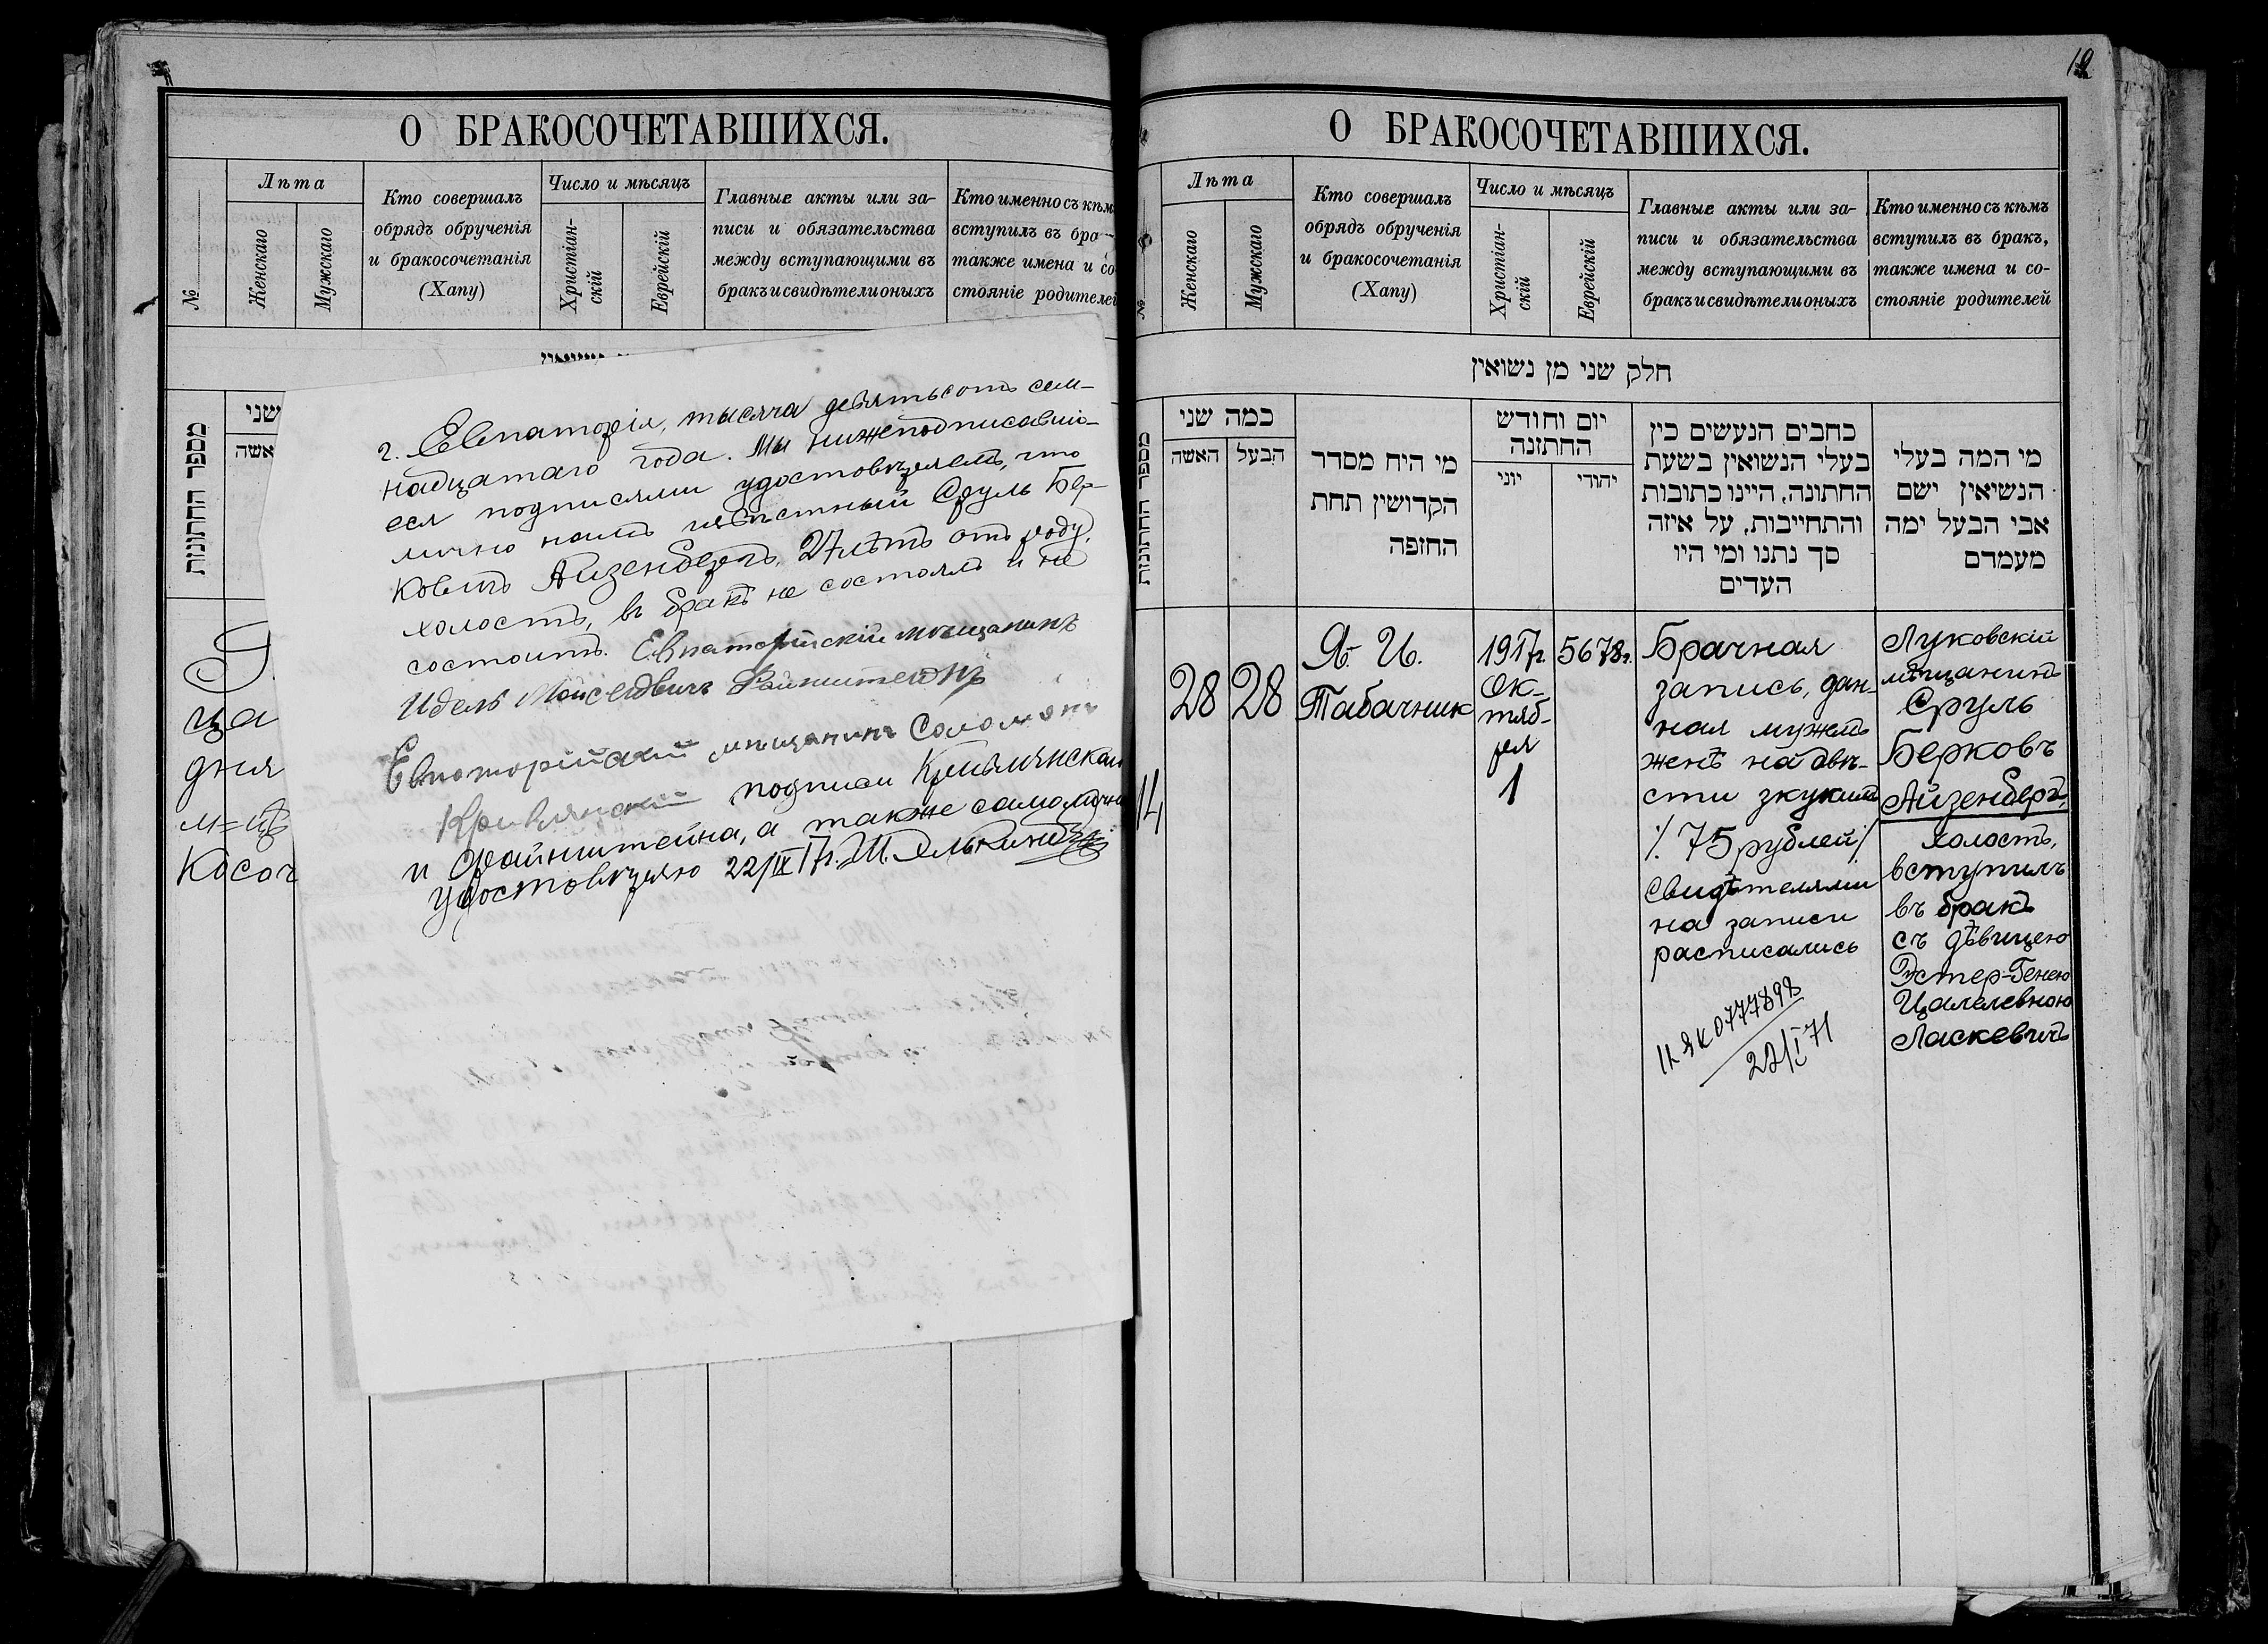 О БРАКОСОЧЕТАВШИХСЯ.
№
Лѣта
Женскаго
Мужскаго
Кто совершалъ
обрядъ обрученія
и бракосочетанія
(Хапу)
Число и мѣсяцъ
Христіан-
скій
Еврейскій
Главные акты или за-
писи и обязательства
между вступающими въ
бракъ и свидѣтели оныхъ
Кто именно съ кѣм
вступилъ въ бра
также имена и со
стояніе родителей
מספר החתונות
שני
אשה
ца
дня
Косоч
г. Евпаторія, тысяча девятьсот сем-
надцатаго года. Мы нижеподписавшіе-
еся подписями удостовѣряемъ, что
лично намъ извѣстный Сруль Бер-
ковичъ Айзенбергъ, 27 лѣтъ отъ роду,
холостъ, въ бракѣ не состоялъ и не
состоитъ. Евпаторійскій мѣщанинъ
Идель Мойсеевичъ Файнштейнъ
Евпаторійскій мѣщанинъ Соломонъ
Кривлянскій подписи Кривлянскаго
и Файнштейна, а также самоличн
удостовѣряю 22/IX 17г. Ш. Элькинд
12
О БРАКОСОЧЕТАВШИХСЯ.
№
Лѣта
Женскаго
Мужскаго
Кто совершалъ
обрядъ обрученія
и бракосочетанія
(Хапу)
Число и мѣсяцъ
Христіан-
скій
Еврейскій
Главные акты или за-
писи и обязательства
между вступающими въ
бракъ и свидѣтели оныхъ
Кто именно съ кѣмъ
вступилъ въ бракъ,
также имена и со-
стояніе родителей
חלק שני מן נשואין
מספר החתונות
כמה שני
האשה
הבעל
מי היח מסדר
הקדושין תחת
החופה
יום וחודש
החתונה
יוני
יהודי
כתבים הנעשים בין
בעלי הנשואין בשעת
החתונה, היינו כתובות
והתחייבות, על איזה
סך נתנו ומי היו
העדים
מי המה בעלי
הנשיאין ישם
אבי הבעל ימה
מעמדם
14
28
28
Я. И.
Табачник
1917г.
Ок-
тяб-
ря
1
5678г.
Брачная
запись, дан-
ная мужемъ
женѣ на двѣ-
сти зкукимъ
/. 75 рублей /
Свидѣтелями
на записи
расписались
II ЯК 0777898
22/I 71
Луковскій
мѣщанинъ
Сруль
Берковъ
Айзенбергъ,
холостъ,
вступилъ
въ бракъ
съ дѣвицею
Эстер-Генею
Цалелевною
Ласкевичъ